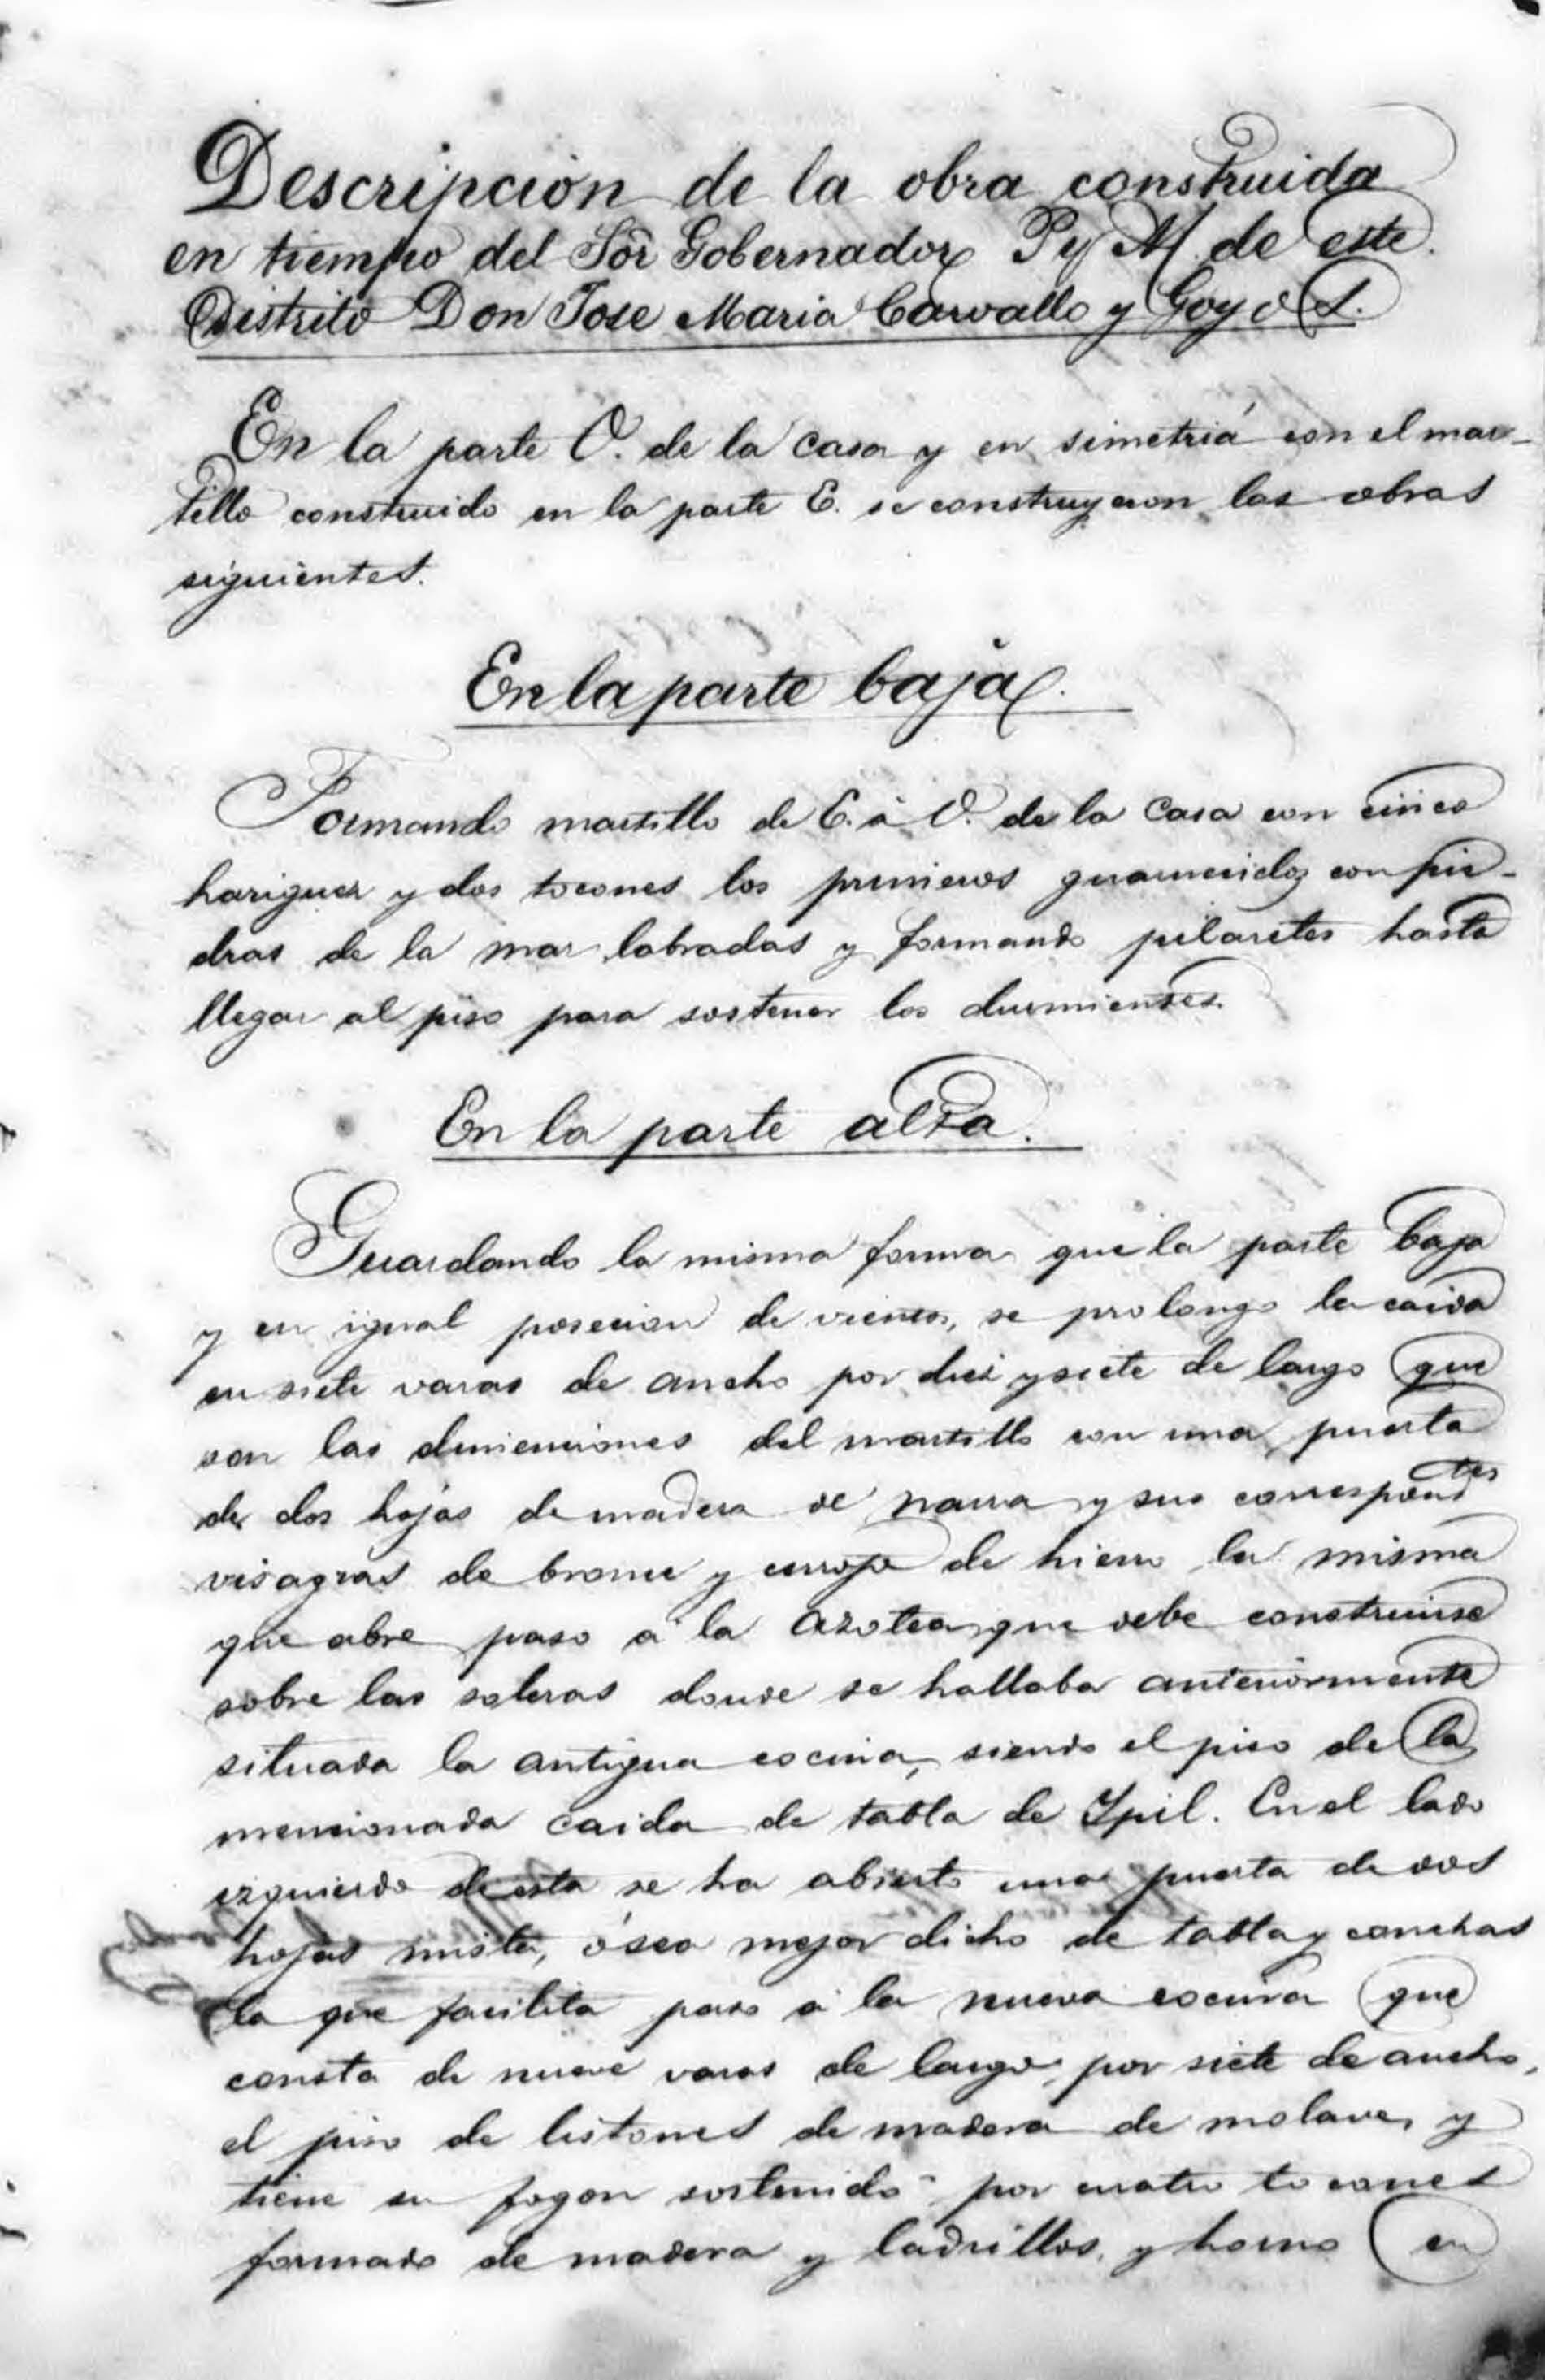 Descripción de la obra construida
en tiempo del Sor Gobernador P. y M. de este
Distrito Don Jose Maria Carvallo y Goyos.
En la parte O. de la casa y en simetriá con el mar-
tillo construido en la parte E. se construyeron las obras
siguientes.
En la parte baja.
Formando martillo de E. á O. de la Casa con cinco
harigues y dos tocones los primeros guarnecidos con pie-
dras de la mar labradas y formando pilaretes hasta
llegar al piso para sostener los durmientes.
En la parte alta.
Guardando la misma forma que la parte baja
y en igual posecion de vientos, se prolongo la caida
en siete varas de ancho por diez y siete de largo que
son las dimenciones del martillo con una puerta
de dos hojas de madera de narra y sus correspondtes
visagras de bronce y de hierro la misma
que abre paso á la Azotea que debe construirse
sobre las soleras donde se hallaba anteriormente
situada la antigua cocina, siendo el piso de la
mencionada caida de tabla de Ypil. En el lado
izquierdo de esta se ha abierto una puerta de dos
hojas mista, ó sea mejor dicho de tabla y conchas
la que facilita paso á la nueva cocina que
consta de nueve varas de largo por siete de ancho,
el piso de listones de madera de molave, y
tiene su fogon sostenido por cuatro tocones
formado de madera y ladrillos, y horno en